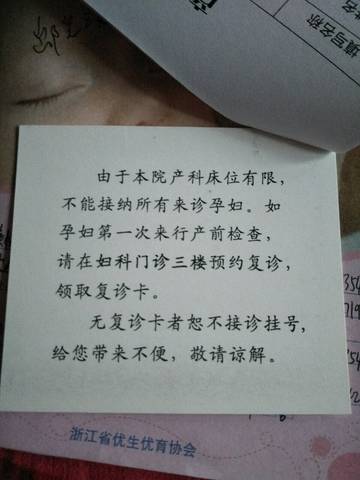 填写名称
由于本院产科床位有限，
不能接纳所有来诊孕妇。如
孕妇第一次来行产前检查，
请在妇科门诊三楼预约复诊，
领取复诊卡。
无复诊卡者恕不接诊挂号，
给您带来不便，敬请谅解。
浙江省优生优育协会